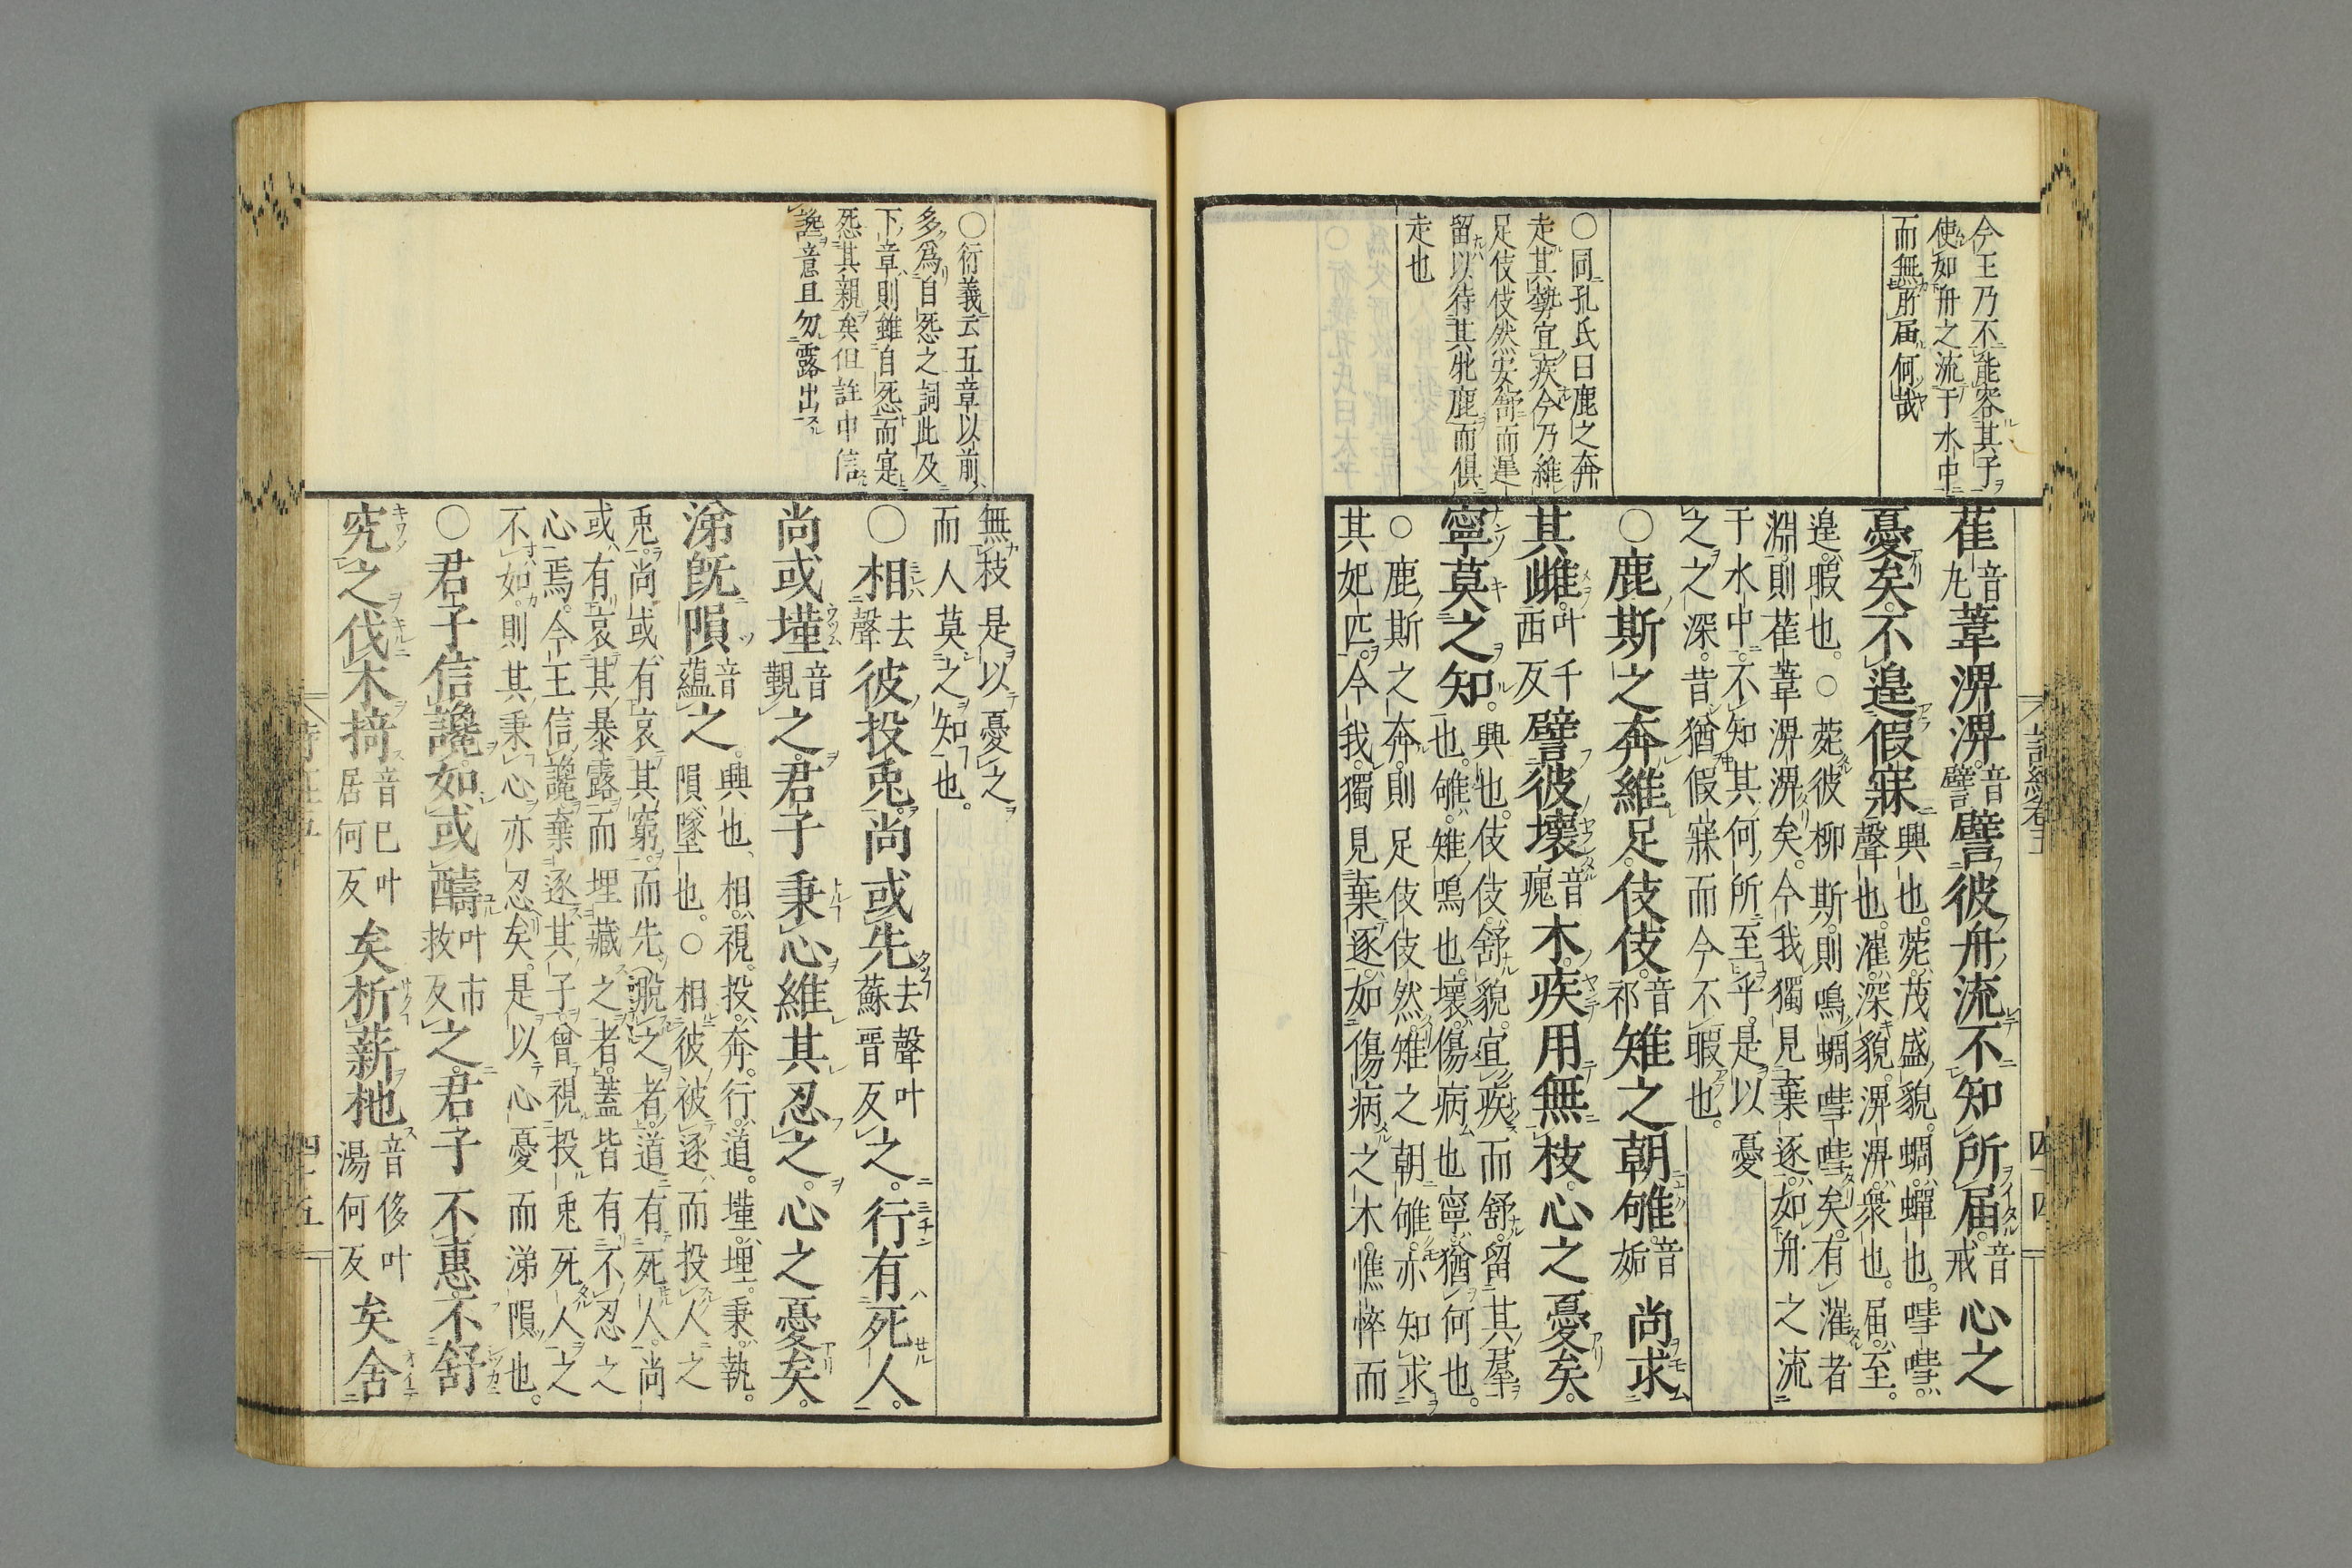 今王乃不能容其子
使如舟之流于水中
而無所届何哉
〇同孔氏曰鹿之奔
走其勢宜疾今乃維
足伎伎然安舒而遲
留以待其牝鹿而俱
走也
萑音九葦淠淠音譬譬彼舟流不知所届音戒心之
憂矣不遑假寐興也菀茂盛貌蜩蟬也嘒嘒
聲也漼深貌淠淠衆也届至
遑暇也〇菀彼柳斯則鳴蜩嘒嘒矣有漼者
淵則萑葦淠淠矣今我獨見棄逐如舟之流
于水中不知其何所至乎是以憂
之之深昔猶假寐而今不暇也
〇鹿斯之奔維足伎伎音祁雉之朝雊音姤尚求
其雌叶千西反譬彼壞音瘣木疾用無枝心之憂矣
寧莫之知興也伎伎舒貌宜疾而舒留其羣
也雊雉鳴也壞傷病也寧猶何也
〇鹿斯之奔則足伎伎然雉之朝雊亦知求
其妃匹今我獨見棄逐如傷病之木憔悴而
〇衍義云五章以前
多爲自怨之詞此及
下章則雖自怨而寔
怨其親矣但註中信
讒意且勿露出
無枝是以憂之
而人莫之知也
〇相去聲彼投兎尚或先去聲叶蘇晋反之行有死人
尚或墐音覲之君子秉心維其忍之心之憂矣
涕旣隕音蘊之興也相視投奔行道墐埋秉執
隕墜也〇相彼被逐而投人之
兎尚或有哀其窮而先脫之者道有死人尚
或有哀其暴露而埋藏之者蓋皆有不忍之
心焉今王信讒棄逐其子曾視投兎死人之
不如則其秉心亦忍矣是以心憂而涕隕也
〇君子信讒如或醻叶市救反之君子不惠不舒
究之伐木掎音已叶居何反矣析薪杝音侈叶湯何反矣舍